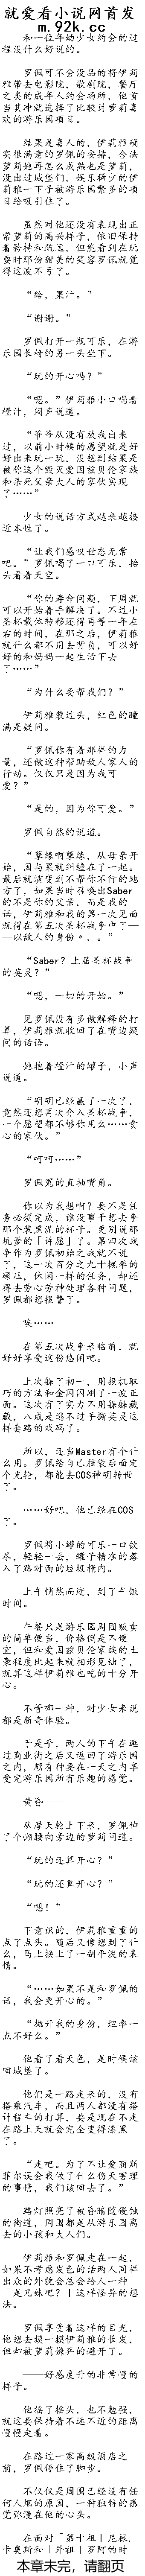 就爱看小说网首发
m.92k.cc
和一位年幼少女约会的过
程没什么好说的。
罗佩可不会没品的将伊莉
雅带去电影院，歌剧院，餐厅
之类的成年人约会场所，他首
当其冲就选择了比较讨萝莉喜
欢的游乐园项目。
结果是喜人的，伊莉雅确
实很满意的罗佩的安排，合法
萝莉她再怎么成熟也是萝莉，
没出过城堡们，娱乐稀少的伊
莉雅一下子被游乐园繁多的项
目给吸引住了。
虽然对他还没有表现出正
常萝莉的高兴样子，依旧保持
着矜持和疏远，但能看到在玩
耍时那份甜美的笑容罗佩就觉
得这波不亏了。
“给，果汁。”
“谢谢。”
罗佩打开一瓶可乐，在游
乐园长椅的另一头坐下。
“玩的开心吗？”
“嗯。”伊莉雅小口喝着
橙汁，闷声说道。
“爷爷从没有放我出来
过，以前小时候的愿望就是好
好出来玩一玩，没想到结果是
被你这个毁灭爱因兹贝伦家族
和杀死父亲大人的家伙实现
了……”
少女的说话方式越来越接
近本性了。
“让我们感叹世态无常
吧。”罗佩喝了一口可乐，抬
头看着天空。
“你的寿命问题，下周就
可以开始着手解决了。不过小
圣杯载体转移还得再等一年左
右的时间，在那之后，伊莉雅
就什么都不用去背负，可以好
好的和妈妈一起生活下去
了……”
“为什么要帮我们？”
伊莉雅装过头，红色的瞳
满是疑问。
“罗佩你有着那样的力
量，还做这种帮助敌人家人的
行动。仅仅只是因为我可
爱？”
“是的，因为你可爱。”
罗佩自然的说道。
“孽缘啊孽缘，从母亲开
始，因与果就纠缠在了一起。
最后就演变到不帮你不行的地
方了，如果当时召唤出Saber
的不是你的父亲，而是我的
话，伊莉雅和我的第一次见面
就得在第五次圣杯战争中了—
—以敌人的身份〃、。”
“Saber？上届圣杯战争
的英灵？”
“嗯，一切的开始。”
见罗佩没有多做解释的打
算，伊莉雅就收回了在嘴边疑
问的话语。
她抱着橙汁的罐子，小声
说道。
“明明已经赢了一次了，
竟然还想再次介入圣杯战争，
一个愿望都不够你用么……贪
心的家伙。”
“呵呵……”
罗佩冤的直抽嘴角。
你以为我想啊？要不是任
务必须完成，谁没事干想去争
那个装黑泥的杯子。更别说那
坑爹的「许愿」了。第四次战
争作为罗佩初始之战就不说
了，这一次百分之九十概率的
碾压，休闲一样的任务，却还
得去劳心劳神处理各种问题，
罗佩都想报警了。
唉……
在第五次战争来临前，就
好好享受这份悠闲吧。
上次躲了初一，用投机取
巧的方法和金闪闪刚了一波正
面。这次有了实力不用躲躲藏
藏，八成是逃不过手撕英灵这
样套路的戏码了。
所以，还当Master有个什
么用。罗佩给自己脑袋后面定
个光轮，都能去COS神明转世
了。
……好吧，他已经在COS
了。
罗佩将小罐的可乐一口饮
尽，轻轻一丢，罐子精准的落
入了路对面的垃圾桶内。
上午悄然而逝，到了午饭
时间。
午餐只是游乐园周围贩卖
的简单便当，价格倒是不便
宜，但和爱因兹贝伦家族的土
豪程度比起来就相形见绌了，
就算这样伊莉雅也吃的十分开
心。
不管哪一种，对少女来说
都是新奇体验。
于是乎，两人的下午在逛
过商业街之后又返回了游乐园
之内，颇有种要在一天之内享
受完游乐园所有乐趣的感觉。
黄昏——
从摩天轮上下来，罗佩伸
了个懒腰向旁边的萝莉问道。
“玩的还算开心？”
“玩的还算开心？”
“嗯！”
下意识的，伊莉雅重重的
点了点头。随后又像想到了什
么，马上换上了一副平淡的表
情。
“……如果不是和罗佩的
话，我会更开心的。”
“抛开我的身份，坦率一
点不好么。”
他看了看天色，是时候该
回城堡了。
他们是一路走来的，没有
搭乘汽车，而且两人都没有搭
计程车的打算，要是现在不走
在路上天就会完全变得漆黑
了。
“走吧。为了不让爱丽斯
菲尔误会我做了什么伤天害理
的事情，我们该回去了。”
路灯照亮了被昏暗随侵蚀
的街道，周围都是从游乐园离
去的小孩和大人们。
伊莉雅和罗佩走在一起，
如果不考虑发色的话两人同样
出众的外貌会总会给人一种
「是兄妹吧？」这样怪异的想
法。
罗佩享受着这样的目光，
他想去摸一摸伊莉雅的长发，
但却被萝莉嫌弃的避开了。
——好感度升的非常慢的
样子。
他摇了摇头，也不勉强，
就这要保持着不远不近的距离
慢慢走着。
在路过一家高级酒店之
前，罗佩停住了脚步。
不仅仅是周围已经没有任
何人烟的原因，一种独特的感
觉弥漫在他的心头。
在面对「第十祖」尼禄.
卡奥斯和「外祖」罗阿的时
本章未完，请翻页